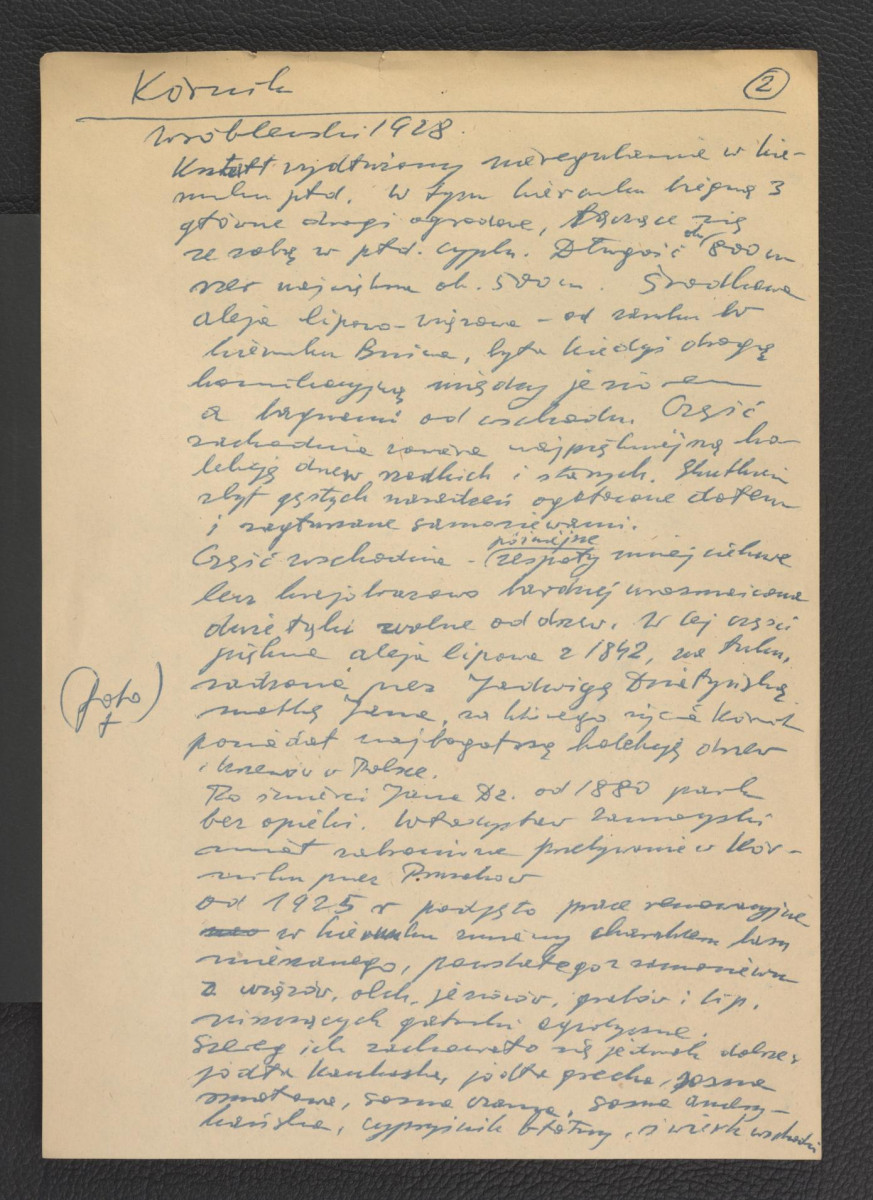 Kórnik
2
Wróblewski 1928.
Kształt wydłużony nieregularnie w kie-
runku płd. W tym kierunku biegną 3
główne drogi ogrodowe, łączące się
ze sobą w płd. cyplu. Długość ok. 800 m
szer największa ok. 500 m. Środkowa
aleja lipowo-wiązowa - od zamku w
kierunku Bnina, była kiedyś drogą
komunikacyjną między jeziorem
a bagnami od wschodu. Część
zachodnia zawiera najpiękniejszą ko-
lekcję drzew rzadkich i starych. Skutkiem
zbyt gęstych nasadzeń ogołocone dołem
i zagłuszane samosiewami.
Część wschodnia - późniejsze zespoły mniej ciekawe
lecz krajobrazowo bardziej urozmaicona
duże tylki wolne od drzew. W tej części
piękna aleja lipowa z 1842,
(foto)
sadzona przez Jadwigę Działyńską
matkę Jana, za którego życia Kórnik
posiadał najbogatszą kolekcję drzew
i krzewów w Polsce.
Po śmierci Jana Dz. od 1880 park
bez opieki. Władysław Zamoyski
miał zabronione przebywanie w Kór-
niku przez Prusaków
od 1925 r podjęto prace renowacyjne
w kierunku zmiany charakteru lasu
mieszanego, powstałego z samosiewu
z wiązów, olch, jesionów, grabów i lip,
niszczących gatunki egzotyczne.
Szereg ich zachowało się jednak dobrze,
jodła kaukaska, jodła grecka, sosna
smołowa, sosna czarna, sosna
cypryśnik błotny, świerk wschodni